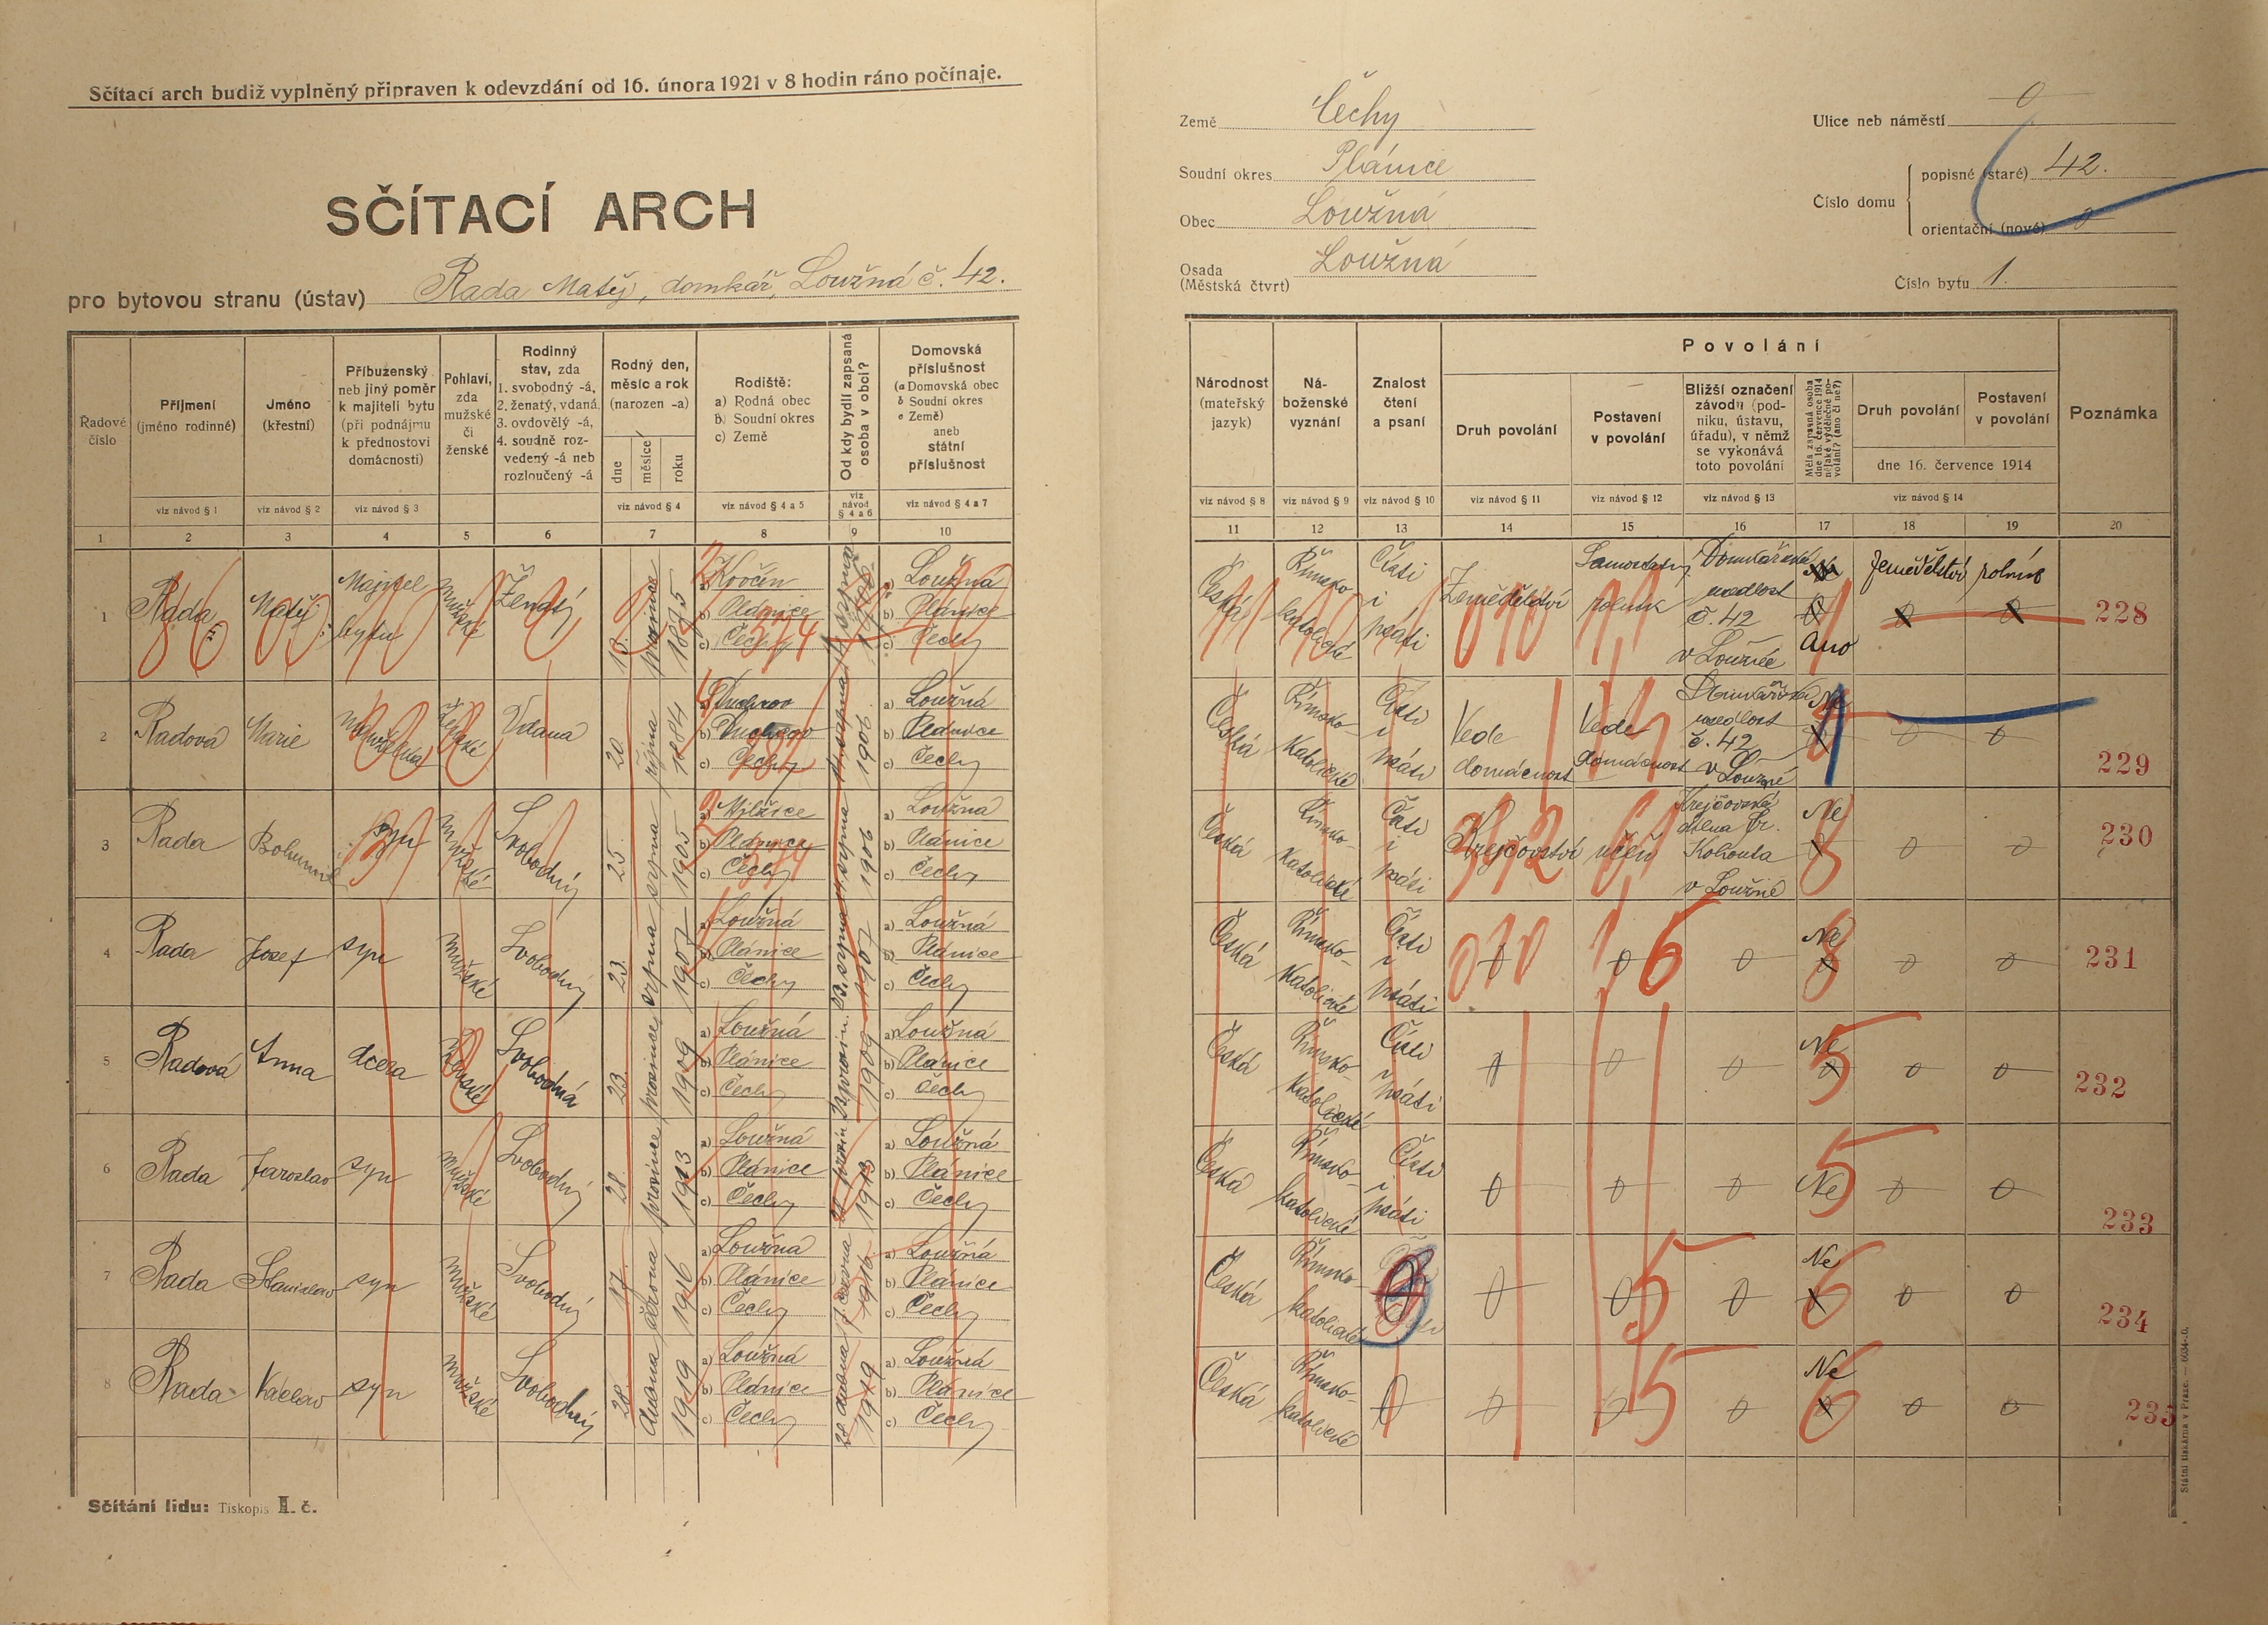 Sčítací arch budiž vyplněný připraven k odevzdání od 16. února 1921 v 8 hodin ráno počínaje.
SČÍTACÍ ARCH
pro bytovou stranu (ústav) Rada Matěj, domkář, Loužná č. 42.
Země Čechy
Soudní okres Plánice
Obec Loužná
Osada Loužná
(Městská čtvrt)
Ulice neb náměstí 0
Číslo domu
popisné (staré) 42.
orientační (nové) 0
Číslo bytu 1.
Řadové číslo
Příjmení (jméno rodinné)
Jméno (křestní)
Příbuženský neb jiný poměr k majiteli bytu (při podnájmu k přednostovi domácnosti)
Pohlaví, zda mužské či ženské
Rodinný stav, zda 1. svobodný -á, 2. ženatý, vdaná, 3. ovdovělý -á, 4. soudně rozvedený -á neb rozloučený -á
Rodný den, měsíc a rok (narozen -a)
dne měsíce roku
Rodiště: a) Rodná obec b) Soudní okres c) Země
Od kdy bydlí zapsaná osoba v obci?
Domovská příslušnost (a Domovská obec b Soudní okres c Země) aneb státní příslušnost
viz návod § 1 viz návod § 2 viz návod § 3 viz návod § 4 viz návod § 4 a 5 viz návod § 4 a 6 viz návod § 4 a 7
1 2 3 4 5 6 7 8 9 10
Národnost (mateřský jazyk)
Náboženské vyznání
Znalost čtení a psaní
Povolání
Druh povolání
Postavení v povolání
Bližší označení závodu (podniku, ústavu, úřadu), v němž se vykonává toto povolání
Měla zapsaná osoba dne 16. července 1914 nějaké výdělečné povolání? (ano či ne?)
Druh povolání
Postavení v povolání
dne 16. července 1914
Poznámka
viz návod § 8 viz návod § 9 viz návod § 10 viz návod § 11 viz návod § 12 viz návod § 13 viz návod § 14
11 12 13 14 15 16 17 18 19 20
1 Rada Matěj Majitel bytu mužské Ženatý 18. prosince 1875 a) Kvočín b) Plánice c) Čechy 14 srpna a) Loužná b) Plánice c) Čechy
Česká Římsko katolické Čísti i psáti Zemědělství Samostatný rolník Domkářská usedlost č. 42 v Loužné Ano Zemědělství rolník 228
2 Radová Marie Manželka Ženské Vdaná 20. října 1884 a) Duchcov b) Duchcov c) Čechy 14 srpna 1906 a) Loužná b) Plánice c) Čechy
Česká Římsko-katolické Čísti i psáti Vede domácnost Vede domácnost Domkářská usedlost č. 42 v Loužné Ne 0 0 229
3 Rada Bohumil syn mužské Svobodný 25. srpna 1905 a) Mlžice b) Plánice c) Čechy 14 srpna 1906 a) Loužná b) Plánice c) Čechy
Česká Římsko-katolické Čísti i psáti Krejčovství učeň Krejčovská dílna Fr. Kohouta v Loužné Ne 0 0 230
4 Rada Josef syn mužské Svobodný 23. srpna 1907 a) Loužná b) Plánice c) Čechy 23. srpna 1907 a) Loužná b) Plánice c) Čechy
Česká Římsko-katolické Čísti i psáti 0 0 0 Ne 0 0 231
5 Radová Anna dcera Ženské Svobodná 23. prosince 1909 a) Loužná b) Plánice c) Čechy 23 prosin. 1909 a) Loužná b) Plánice c) Čechy
Česká Římsko-katolické Čísti i psáti 0 0 0 Ne 0 0 232
6 Rada Jaroslav syn mužské Svobodný 28. prosince 1913 a) Loužná b) Plánice c) Čechy 28 prosin 1913 a) Loužná b) Plánice c) Čechy
Česká Římsko-katolické Čísti i psáti 0 0 0 Ne 0 0 233
7 Rada Stanislav syn mužské Svobodný 17. června 1916 a) Loužná b) Plánice c) Čechy 17. června 1916 a) Loužná b) Plánice c) Čechy
Česká Římsko-katolické 0 0 0 0 Ne 0 0 234
8 Rada Václav syn mužské Svobodný 28. dubna 1919 a) Loužná b) Plánice c) Čechy 28 dubna 1919 a) Loužná b) Plánice c) Čechy
Česká Římsko-katolické 0 0 0 0 Ne 0 0 235
Sčítání lidu: Tiskopis II. č.
Státní tiskárna v Praze.